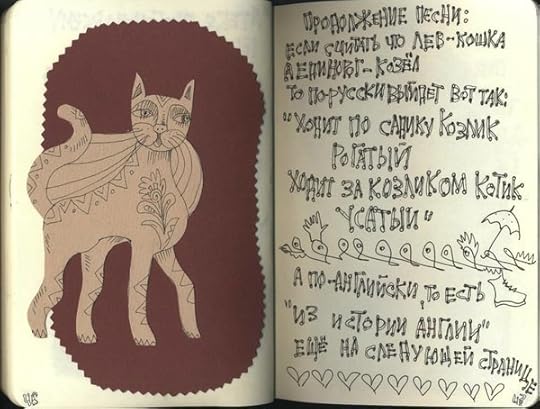 ПРОДОЛЖЕНИЕ ПЕСНИ:
ЕСЛИ СЧИТАТЬ ЧТО ЛЕВ - КОШКА
А ЕДИНОРОГ - КОЗЁЛ
ТО ПО РУССКИ ВЫЙДЕТ ВОТ ТАК:
"ХОДИТ ПО САДИКУ КОЗЛИК
РОГАТЫЙ
ХОДИТ ЗА КОЗЛИКОМ КОТИК
УСАТЫЙ"
А ПО-АНГЛИЙСКИ, ТО ЕСТЬ
"ИЗ ИСТОРИИ АНГЛИИ"
ЕЩЁ НА СЛЕДУЮЩЕЙ СТРАНИЦЕ